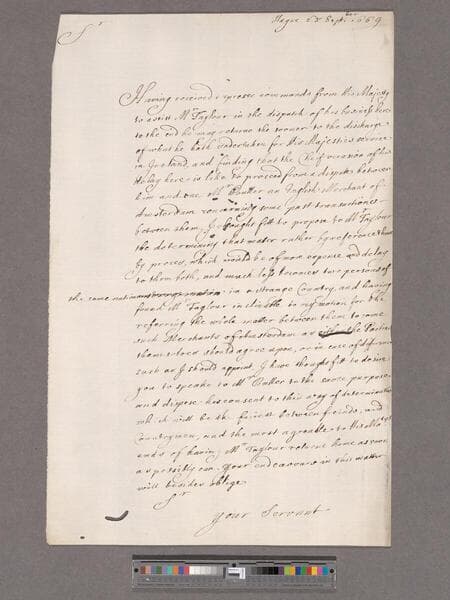 Hague 28 Septber 1669
Sr
Having received expresse commands from his Majesty
to assist Mr Taylour in the dispatch of his businesse here
to the end he may returne the sooner to the discharge
of what he hath undertaken for his Majesties service
in Ireland, and finding that the chief occasion of his
stay here is like to proceed from a dispute between
him and one Mr Butler an English Merchant of
Amsterdam concerning some past transactions
between them, I thought fitt to propose to Mr Taylour
the determining that matter rather by reference than
by proces, which would be of more expence and delay
to them both, and much lesse becomes two persons of
the same nation in a strange Country, and having
found Mr Taylour inclinable to my motion for the
referring the whole matter between them to some
such Merchants of Amsterdam as either the Parties
themselves should agree upon, or in case of difference
such as I should appoint, I have thought fitt to desire
you to speake to Mr Butler to the same purpose
and dispose his consent to this way of determination
which will be the fairest between friends, and
Countrymen, and the most agreable to his Matys
ends of having Mr Taylour returne home as soon
as possibly can. Your endeavours in this matter
will besides oblige
Sr
Your Servant